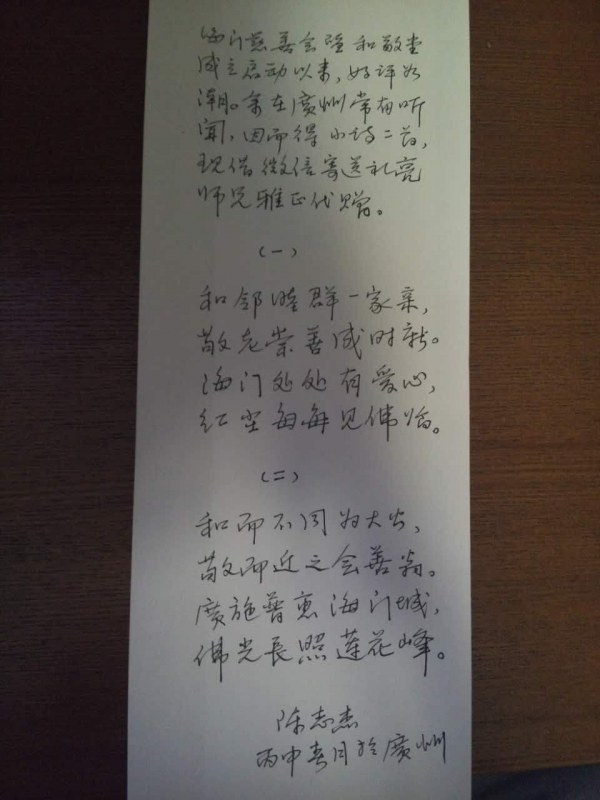 海门慈善会暨和敬堂
成立启动以来，好评如
潮。余在廣州常有听
闻，因而得小诗二首，
现借微信寄送礼亮
师兄雅正代赠。
（一）
和邻睦群一家亲，
敬老崇善成时新。
海门处处有爱心，
红尘每每见佛怡。
（二）
和而不同为大公，
敬而近之会善翁。
廣施普惠海门城，
佛光長照莲花峰。
陈志杰
丙申春月於廣州